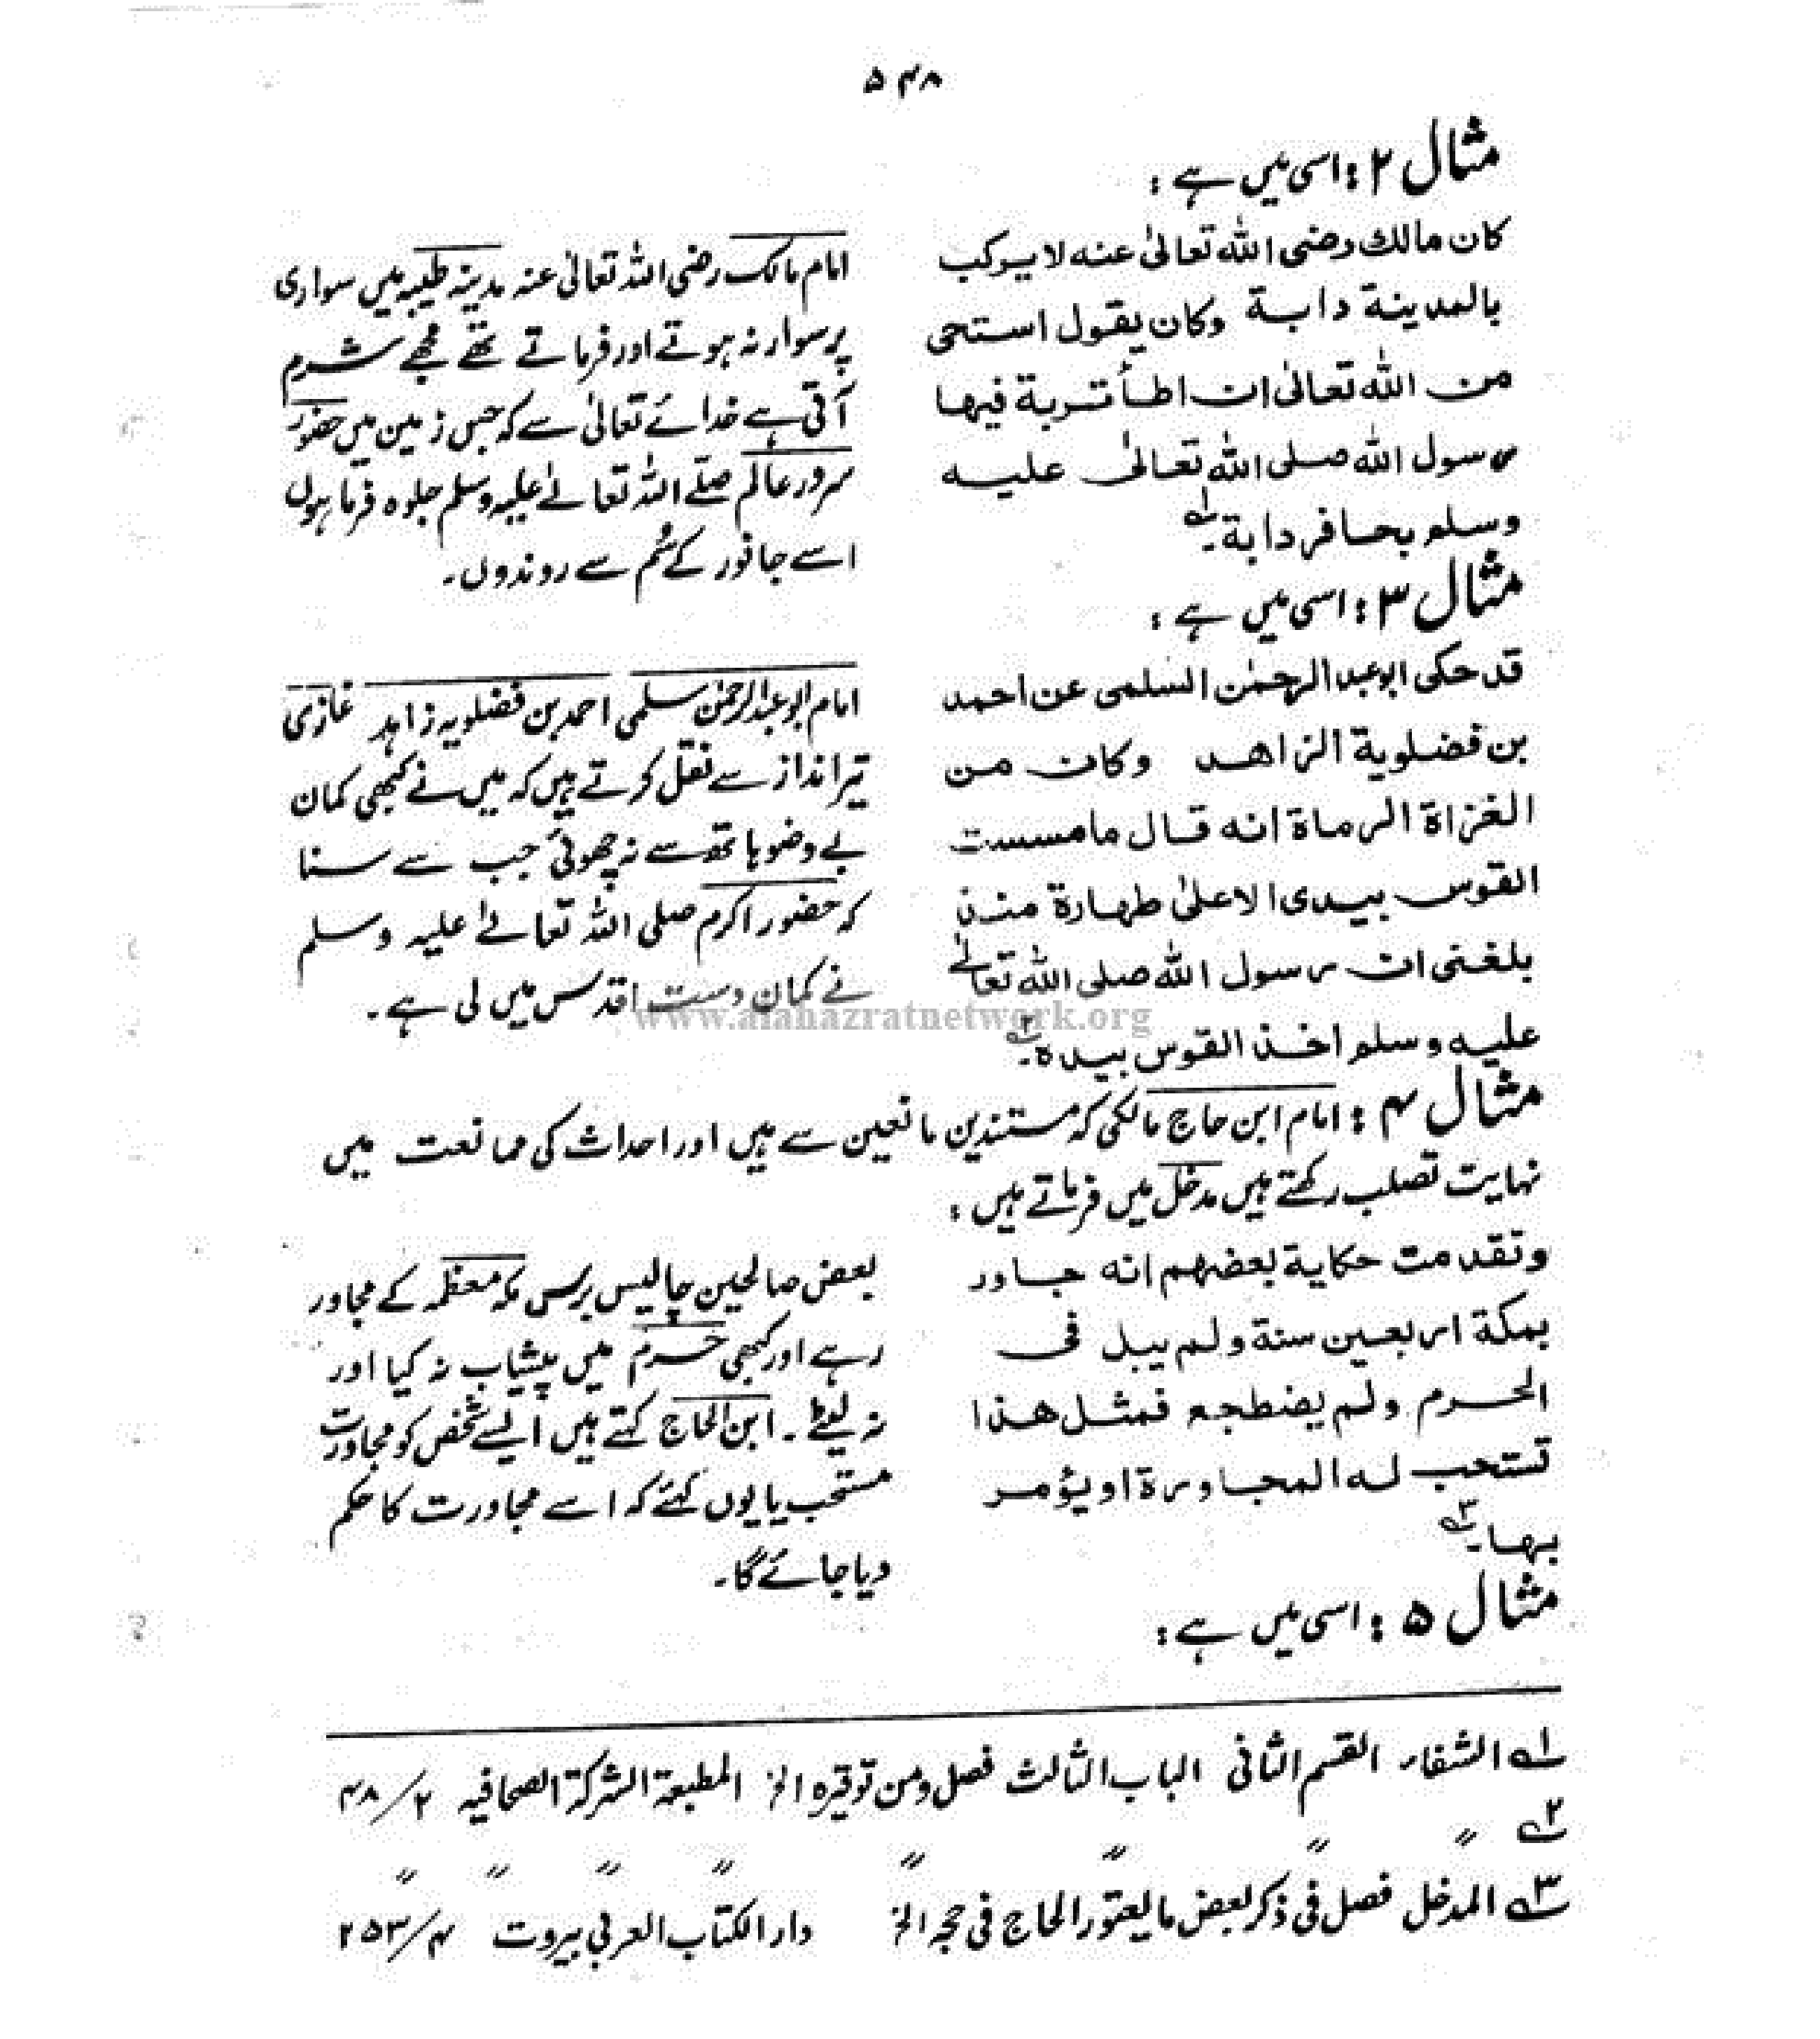 ۵۴۸
مثال ۲ : اسی میں ہے :
کان مالك رضی الله تعالیٰ عنه لا یرکب
بالمدینة دابة وکان یقول استحی
من الله تعالیٰ ان اطأ تربة فیها
رسول الله صلی الله تعالیٰ علیه
وسلم بحافر دابة۔ ۱ے
امام مالک رضی اللہ تعالیٰ عنہ مدینہ طیبہ میں سواری
پر سوار نہ ہوتے اور فرماتے تھے مجھے شرم
آتی ہے خدائے تعالیٰ سے کہ جس زمین میں حضور
سرور عالم صلے اللہ تعالےٰ علیہ وسلم جلوہ فرما ہوں
اسے جانور کے سُم سے روندوں۔
مثال ۳ : اسی میں ہے :
قد حکی ابو عبد الرحمٰن السلمی عن احمد
بن فضلویة الزاهد وکان من
الغزاة الرماة انه قال ما مسست
القوس بیدی الا علیٰ طهارة منذ
بلغنی ان رسول الله صلی الله تعالےٰ
علیه وسلم اخذ القوس بیده۔ ۲ے
امام ابو عبدالرحمٰن سلمی احمد بن فضلویہ زاہد غازی
تیر انداز سے نقل کرتے ہیں کہ میں نے کبھی کمان
بے وضو ہاتھ سے نہ چھوئی جب سے سنا
کہ حضور اکرم صلی اللہ تعالےٰ علیہ وسلم
نے کمان دست اقدس میں لی ہے۔
www.alahazratnetwork.org
مثال ۴ : امام ابن حاج مالکی کہ مستندین مانعین سے ہیں اور احداث کی ممانعت میں
نہایت تصلب رکھتے ہیں مدخل میں فرماتے ہیں :
وتقدمت حکایة بعضهم انه جاور
بمکة اربعین سنة ولم یبل فی
الحرم ولم یضطجع فمثل هذا
تستحب له المجاورة او یؤمر
بها۔ ۳ے
بعض صالحین چالیس برس مکہ معظمہ کے مجاور
رہے اور کبھی حرم میں پیشاب نہ کیا اور
نہ لیٹے۔ ابن الحاج کہتے ہیں ایسے شخص کو مجاورت
مستحب یا یوں کہئے کہ اسے مجاورت کا حکم
دیا جائے گا۔
مثال ۵ : اسی میں ہے :
۱ے الشفاء القسم الثانی الباب الثالث فصل ومن توقیرہ الخ المطبعة الشرکة الصحافیہ ۲/ ۴۸
۲ے ״ ״ ״ ״ ״ ״ ״ ״
۳ے المدخل فصل فی ذکر بعض ما یعتور الحاج فی حجہ الخ دار الکتاب العربی بیروت ۴/ ۲۵۳